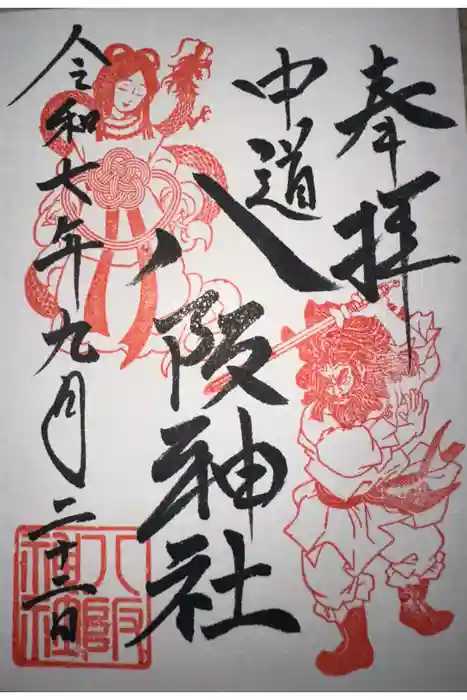 奉拝
中道
八阪神社
令和七年九月二十三日
八阪神社